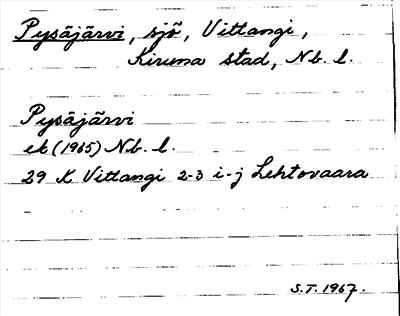 Pysäjärvi, sjö, Vittangi,
Kiruna stad, Nb. l.
Pysäjärvi
ek (1965) Nb. l.
29 K Vittangi 2-3 i-j Lehtovaara
S.T. 1967.